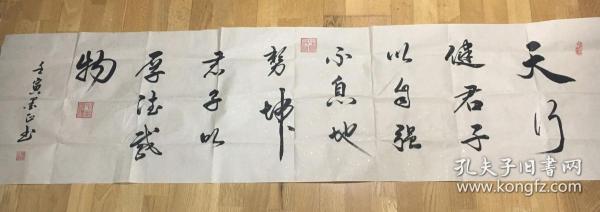 天行
健君子
以自强
不息地
势坤
君子以
厚德载
物
壬寅 书
孔夫子旧书网
www.kongfz.com